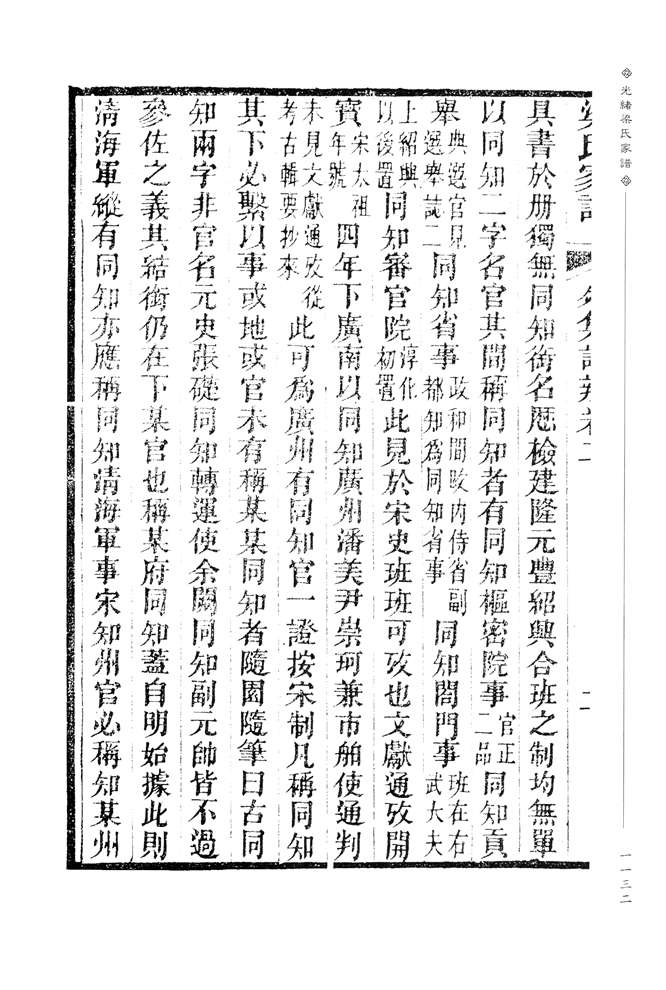 光緒梁氏家譜
一一三二
氏家 卷二 二
具書於册獨無同知銜名厯檢建隆元豐紹興合班之制均無單
以同知二字名官其間稱同知者有同知樞密院事官正二品同知貢
舉典選官見選舉誌二同知省事政和間改内侍省副都知爲同知省事同知閤門事班在右武大夫
上紹興以後置同知審官院淳化初置此見於宋史班班可攷也文獻通攷開
寶宋太祖年號四年下廣南以同知廣州潘美尹崇珂兼市舶使通判
未見文獻通攷從考古輯要抄來此可爲廣州有同知官一證按宋制凡稱同知
其下必繫以事或地或官未有稱某某同知者隨園隨筆曰古同
知兩字非官名元史張礎同知轉運使余闕同知副元帥皆不過
參佐之義其結銜仍在下某官也稱某府同知蓋自明始據此則
清海軍縱有同知亦應稱同知清海軍事宋知州官必稱知某州